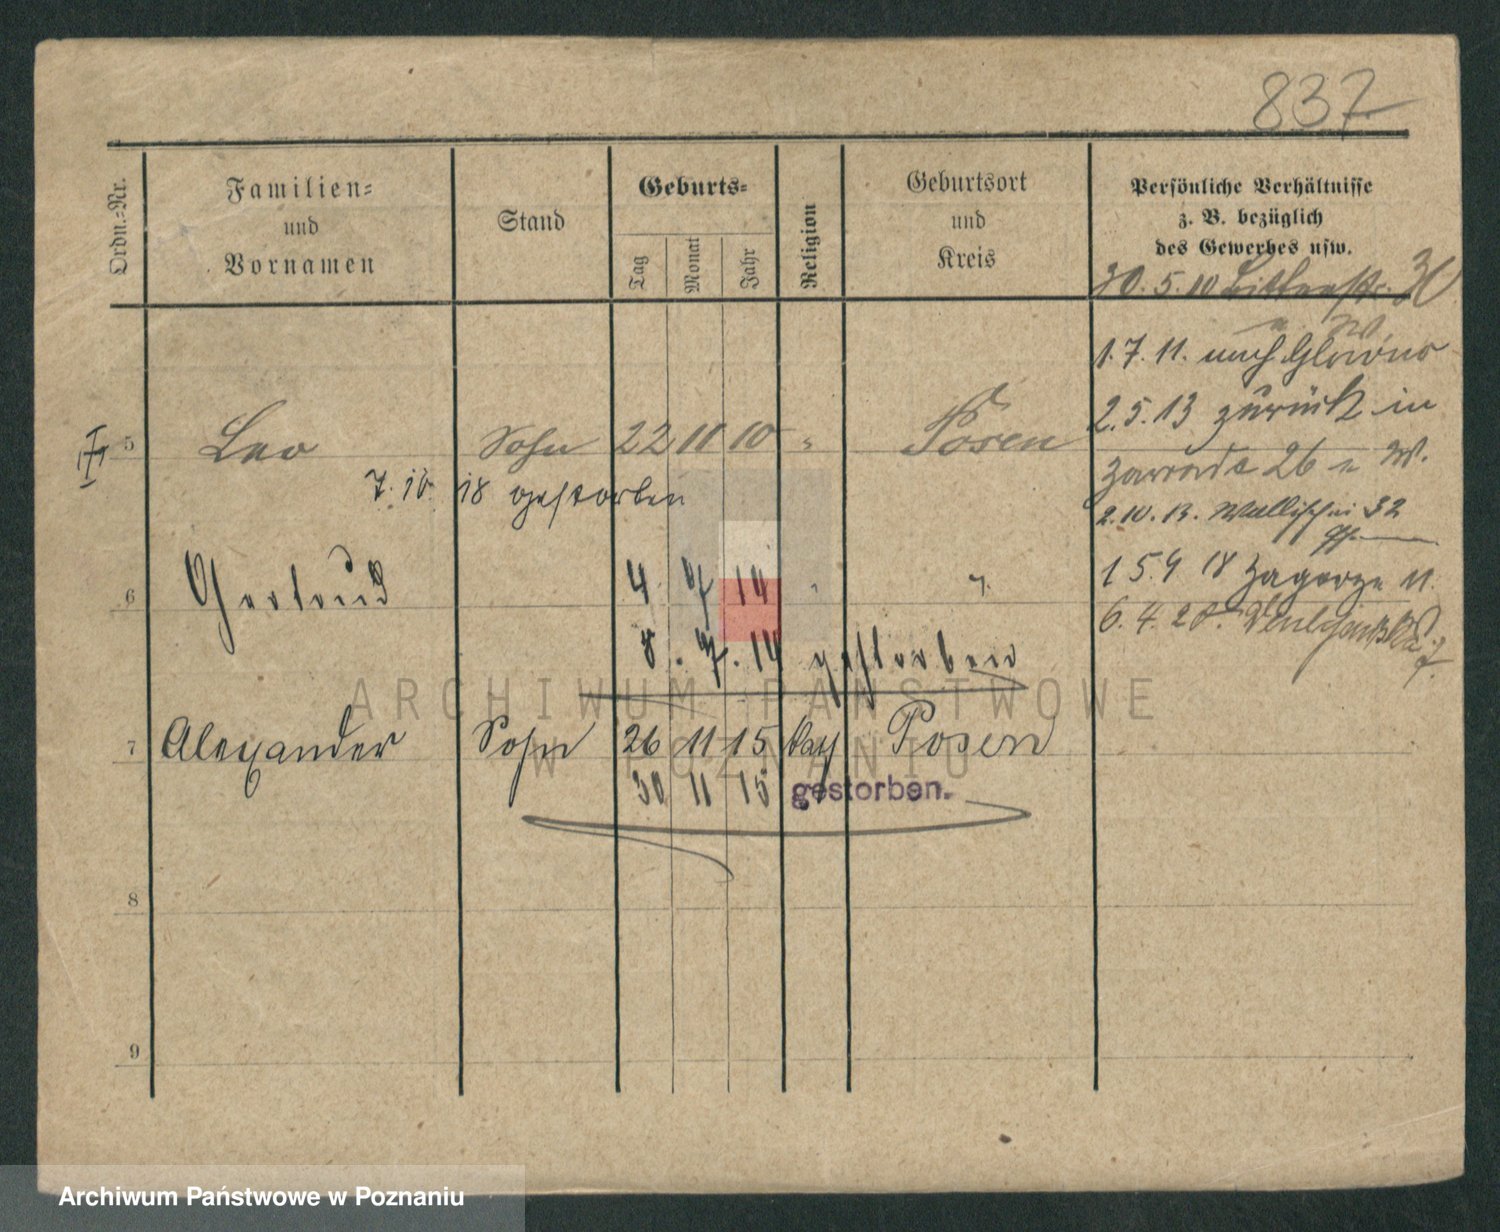 837
Ordn.-Nr.
Familien-
und
Vornamen
Stand
Geburts-
Tag
Monat
Jahr
Religion
Geburtsort
und
Kreis
Persönliche Verhältnisse
z. B. bezüglich
des Gewerbes usw.
30. 5. 10 30
1. 7. 11. nach Glowno
2. 5. 13 zurück in
5 Leo Sohn 22 11 10 " Posen
Zawade 26
7. 10. 18 gestorben
2. 10. 13. Wallischei 32
15. 9 18 Zagorze 11.
6 Gertrud 4. 7 14 "
6. 4. 20.
8. 7. 14 gestorben
ARCHIWUM PAŃSTWOWE
7 Alexander Sohn 26 11 15 kath Posen
W POZNANIU
30 11 15 gestorben.
8
9
Archiwum Państwowe w Poznaniu